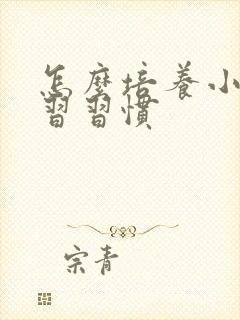 怎麼培養小
習習慣
宗青